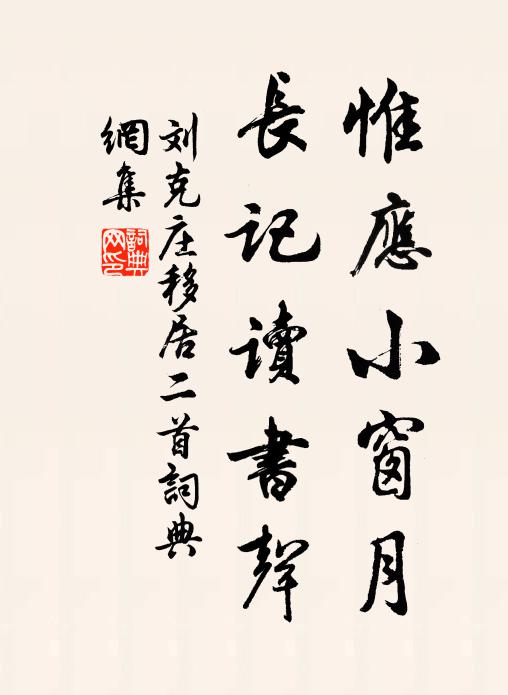 惟應小窗月
長記讀書聲
刘克庄移居二首詞典
網集
詞典网印